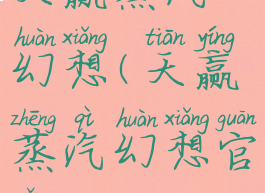 huàn xiǎng tiān yíng
幻想(天赢
zhēng qì huàn xiǎng guān
蒸汽幻想官